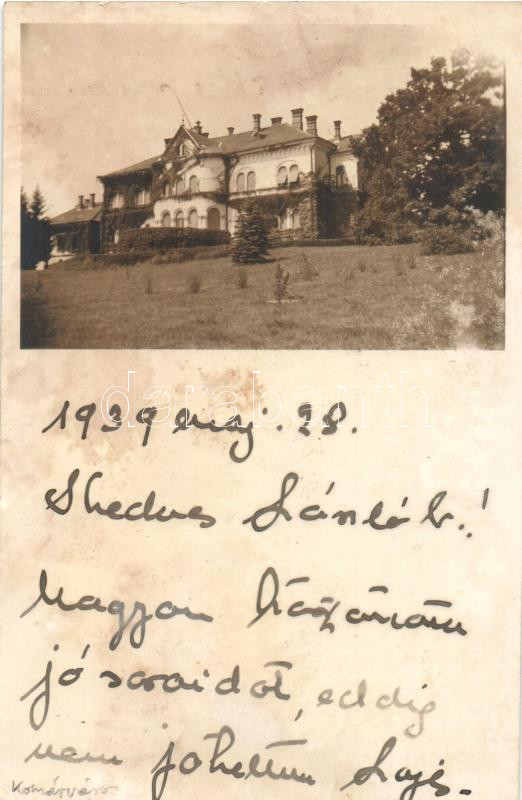 1939 maj. 28.
Kedves Lászlób.!
Nagyon köszönöm
jó soraidat, eddig
nem jöhettem Lajs.
Komárváros
darabanth